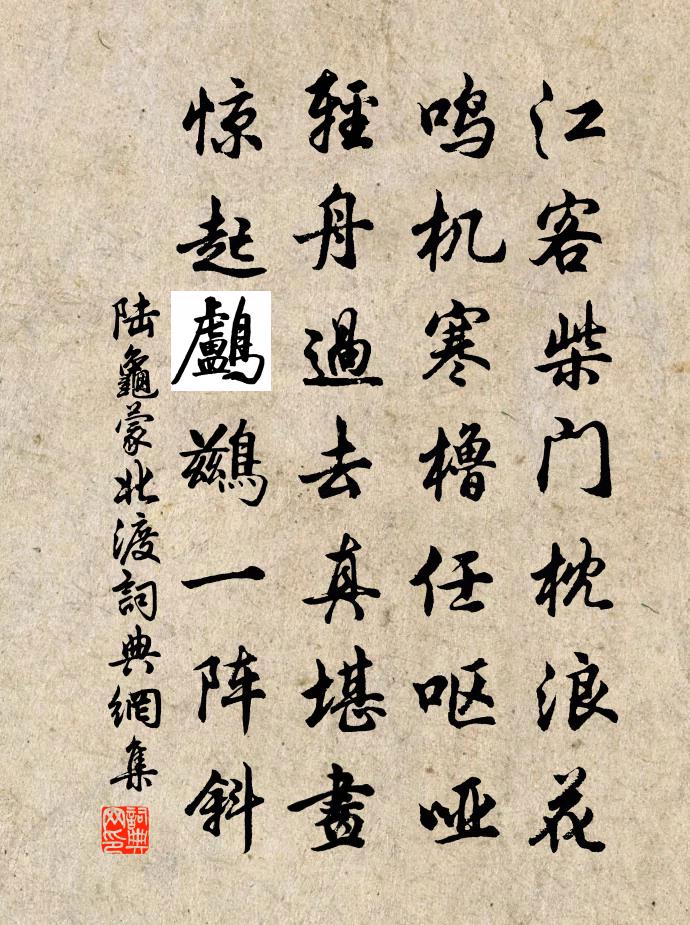 江客柴门枕浪花
鸣机寒橹任呕哑
輕舟過去真堪畫
惊起鸕鹚一阵斜
陆龜蒙北渡詞典網集
詞典网印